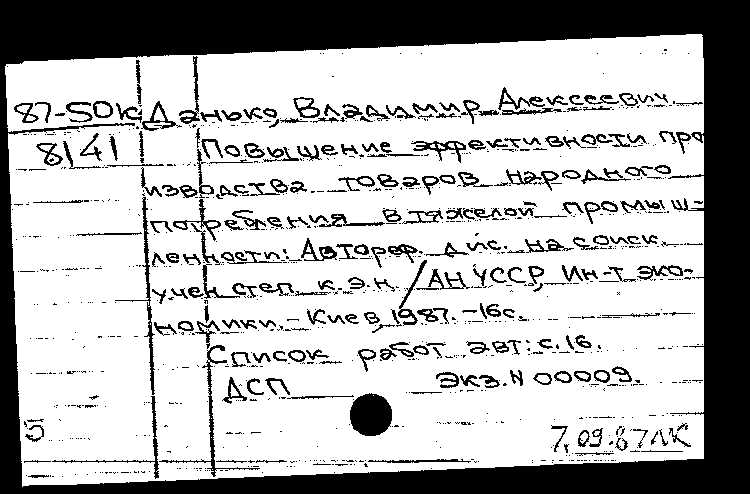 87-50к Данько, Владимир Алексеевич
8141 Повышение эффективности про
изводства товаров народного
потребления в тяжелой промыш-
ленности: Автореф. дис. на соиск.
учен степ. к.э.н. / АН УССР, Ин-т эко-
номики. - Киев, 1987. - 16с.
Список работ авт: с.16.
ДСП Экз. N 00009.
5 7.09.87 ЛК